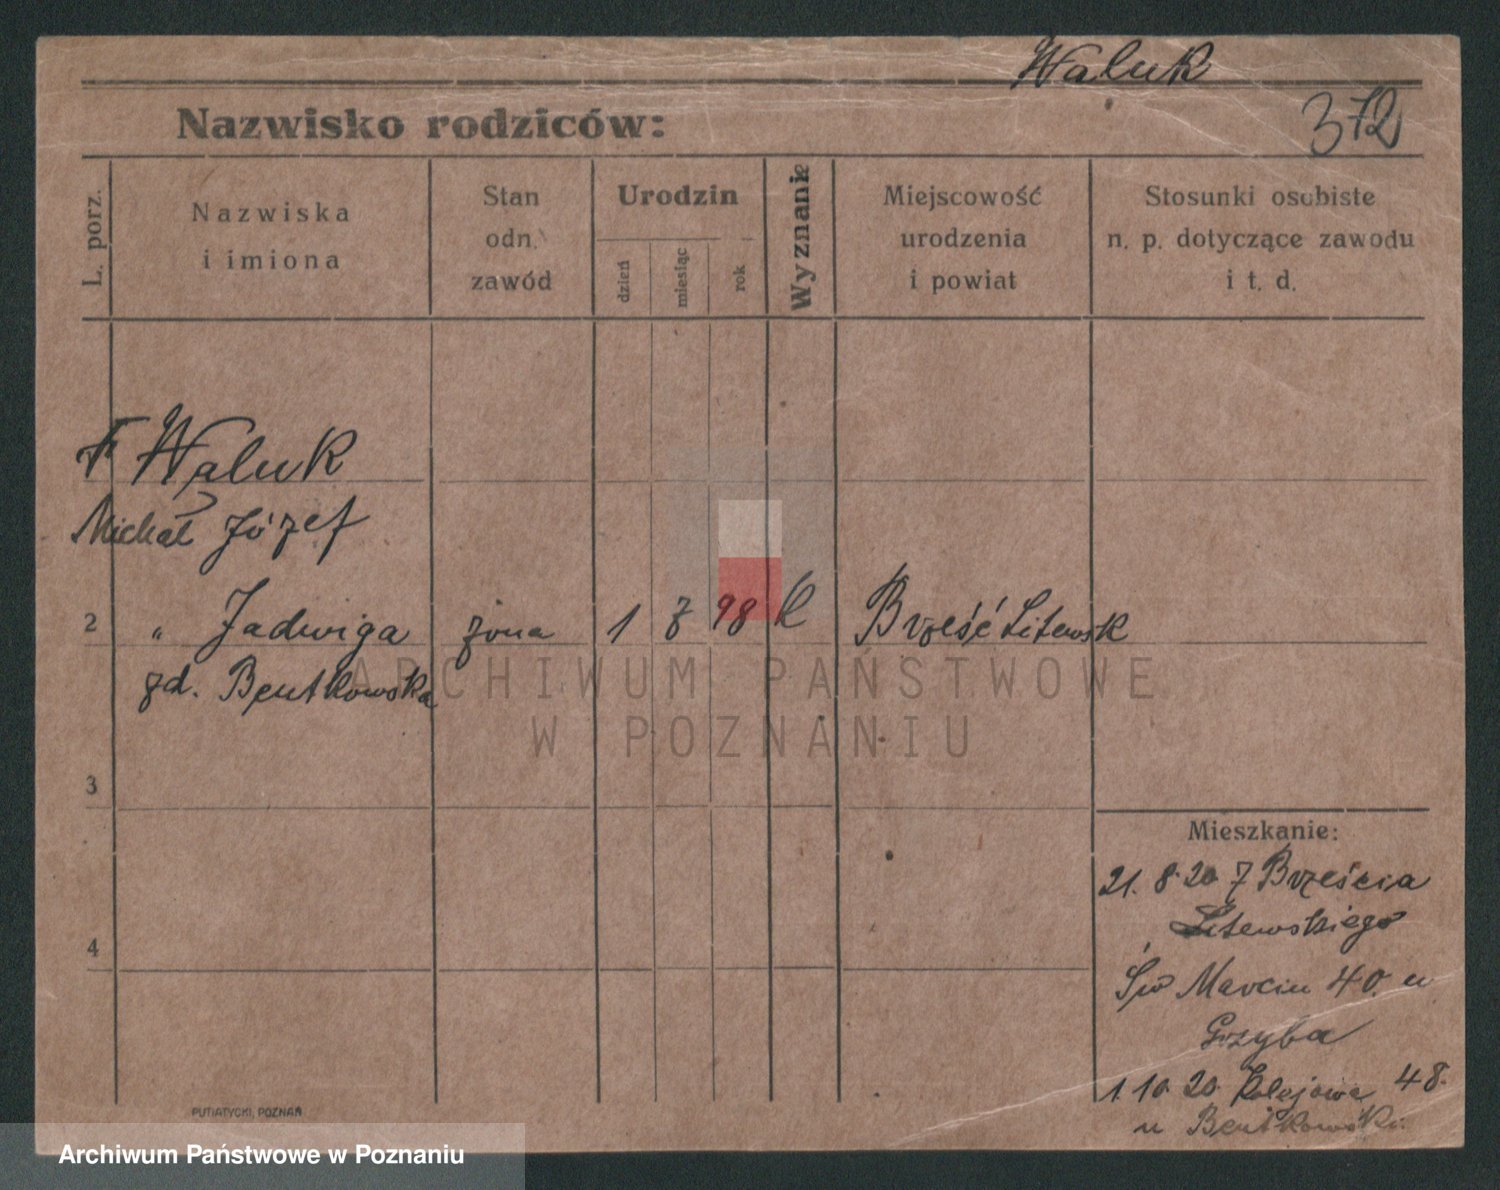 Waluk
372
Nazwisko rodziców:
L. porz.
Nazwiska
i imiona
Stan
odn.
zawód
Urodzin
dzień
miesiąc
rok
Wyznanie
Miejscowość
urodzenia
i powiat
Stosunki osobiste
n. p. dotyczące zawodu
i t. d.
Waluk
Michał Józef
2 " Jadwiga żona 1 7 98 k Brześć Litewsk
zd. Bentkowska
ARCHIWUM PAŃSTWOWE
W POZNANIU
3
Mieszkanie:
21. 8. 20 z Brześcia
Litewskiego
4
Św Marcin 40. u
Grzyba
1. 10. 20. Kolejowa 48.
u Bentkowski
PUTIATYCKI, POZNAŃ
Archiwum Państwowe w Poznaniu